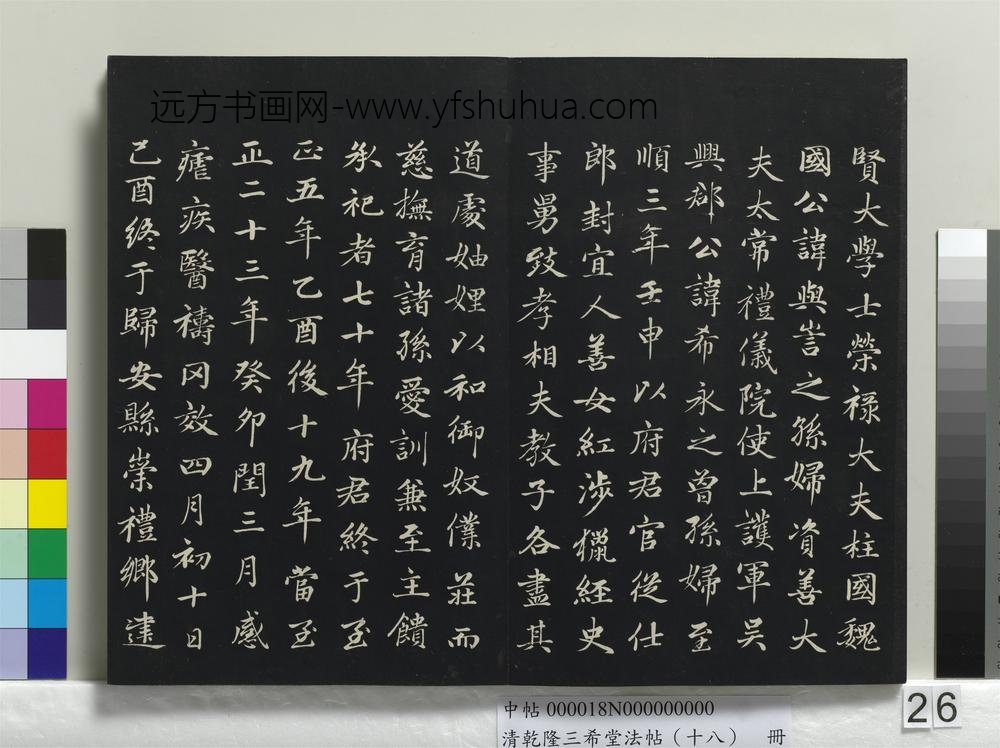 远方书画网-www.yfshuhua.com
賢大學士榮祿大夫柱國魏
國公諱與訔之孫婦資善大
夫太常禮儀院使上護軍吳
興郡公諱希永之曾孫婦至
順三年壬申以府君官從仕
郎封宜人善女紅涉獵經史
事舅致孝相夫教子各盡其
道處妯娌以和御奴僕莊而
慈撫育諸孫愛訓兼至主饋
承祀者七十年府君終于至
正五年乙酉後十九年當至
正二十三年癸卯閏三月感
瘧疾醫禱罔效四月初十日
己酉終于歸安縣崇禮鄉建
中帖 000018N000000000
清乾隆三希堂法帖（十八） 冊
26